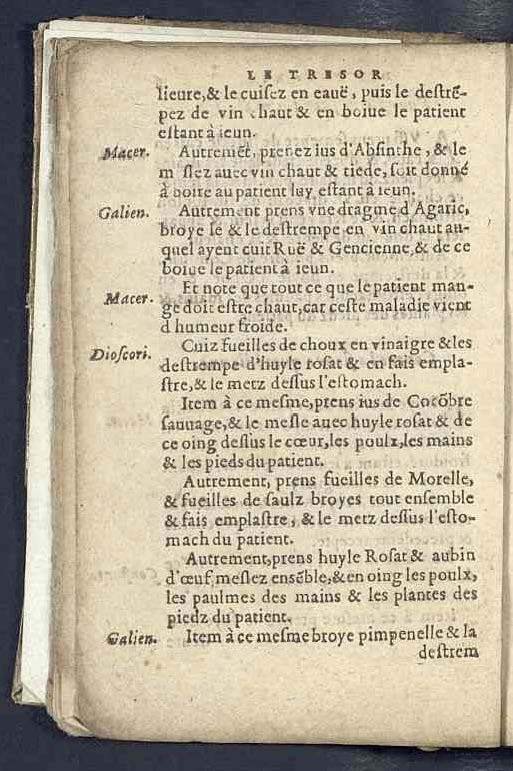 LE TRESOR
lieure,& le cuisez en eauë, puis le destrẽ-
pez de vin chaut & en boiue le patient
estant à ieun.
Macer. Autremẽt, prenez ius d'Absinthe, & le
meslez auec vin chaut & tiede, soit donné
à boire au patient luy estant à ieun.
Galien. Autrement prens vne dragme d'Agaric,
broye le & le destrempe en vin chaut au-
quel ayent cuit Ruë & Gencienne, & de ce
boiue le patient à ieun.
Et note que tout ce que le patient man-
Macer. ge doit estre chaut, car ceste maladie vient
d'humeur froide.
Dioscori. Cuiz fueilles de choux en vinaigre & les
destrempe d'huyle rosat & en fais empla-
stre, & le metz dessus l'estomach.
Item à ce mesme, prens ius de Cocõbre
sauuage, & le mesle auec huyle rosat & de
ce oing dessus le cœur, les poulx, les mains
& les pieds du patient.
Autrement, prens fueilles de Morelle,
& fueilles de saulz broyes tout ensemble
& fais emplastre, & le metz dessus l'esto-
mach du patient.
Autrement, prens huyle Rosat & aubin
d'œuf, meslez ensẽble, & en oing les poulx,
les paulmes des mains & les plantes des
piedz du patient.
Galien. Item à ce mesme broye pimpenelle & la
destrem